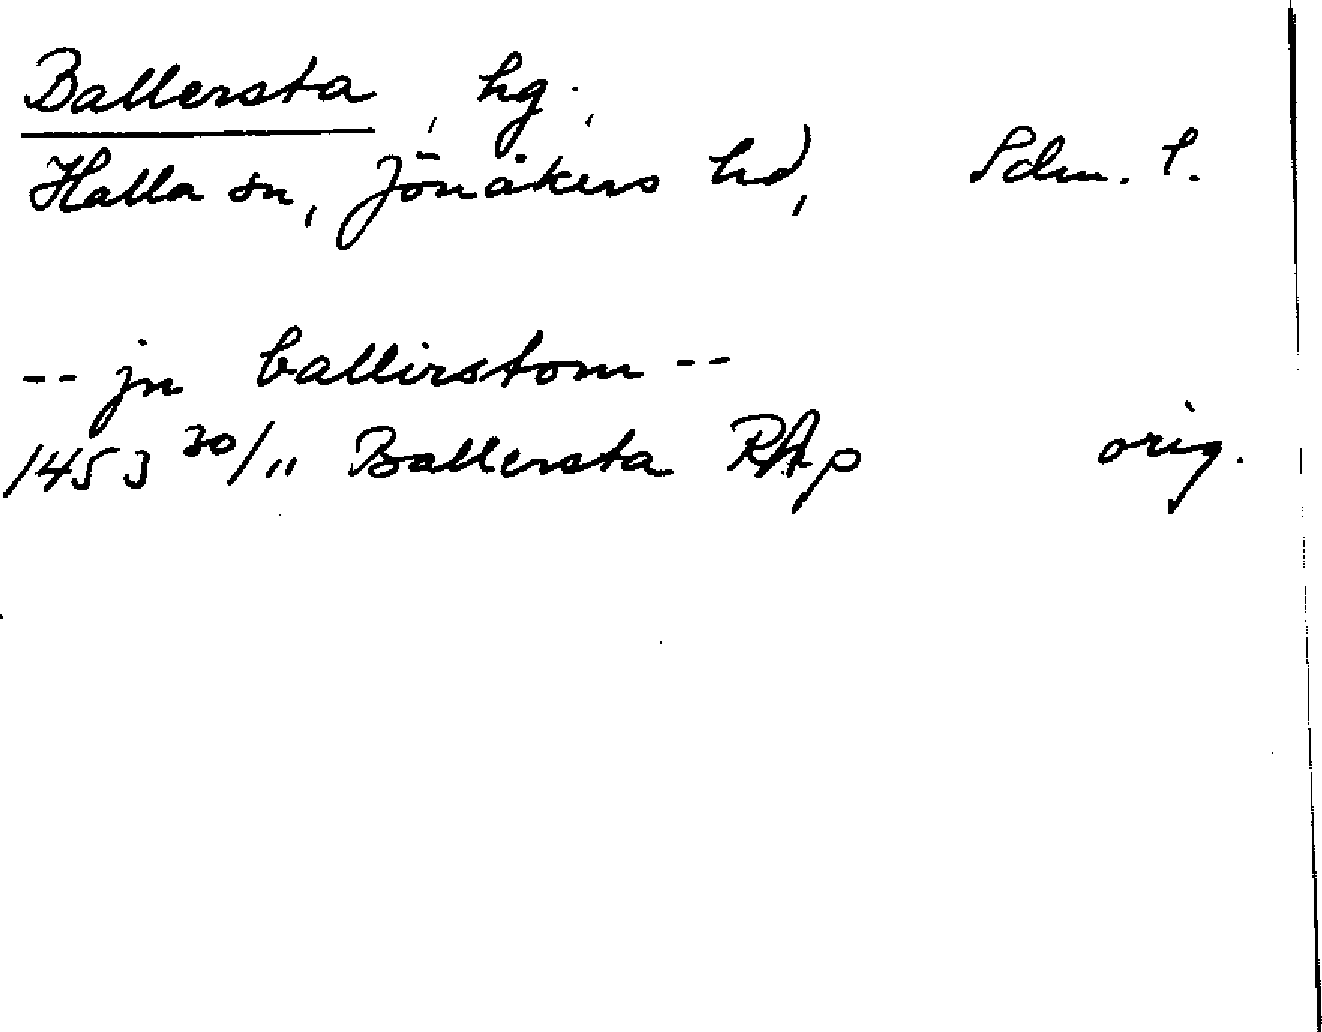 Ballersta, hg.,
Halla sn, Jönåkers hd, Sdm. l.
-- jn ballirstom --
1453 20/11 Ballersta RAp orig.